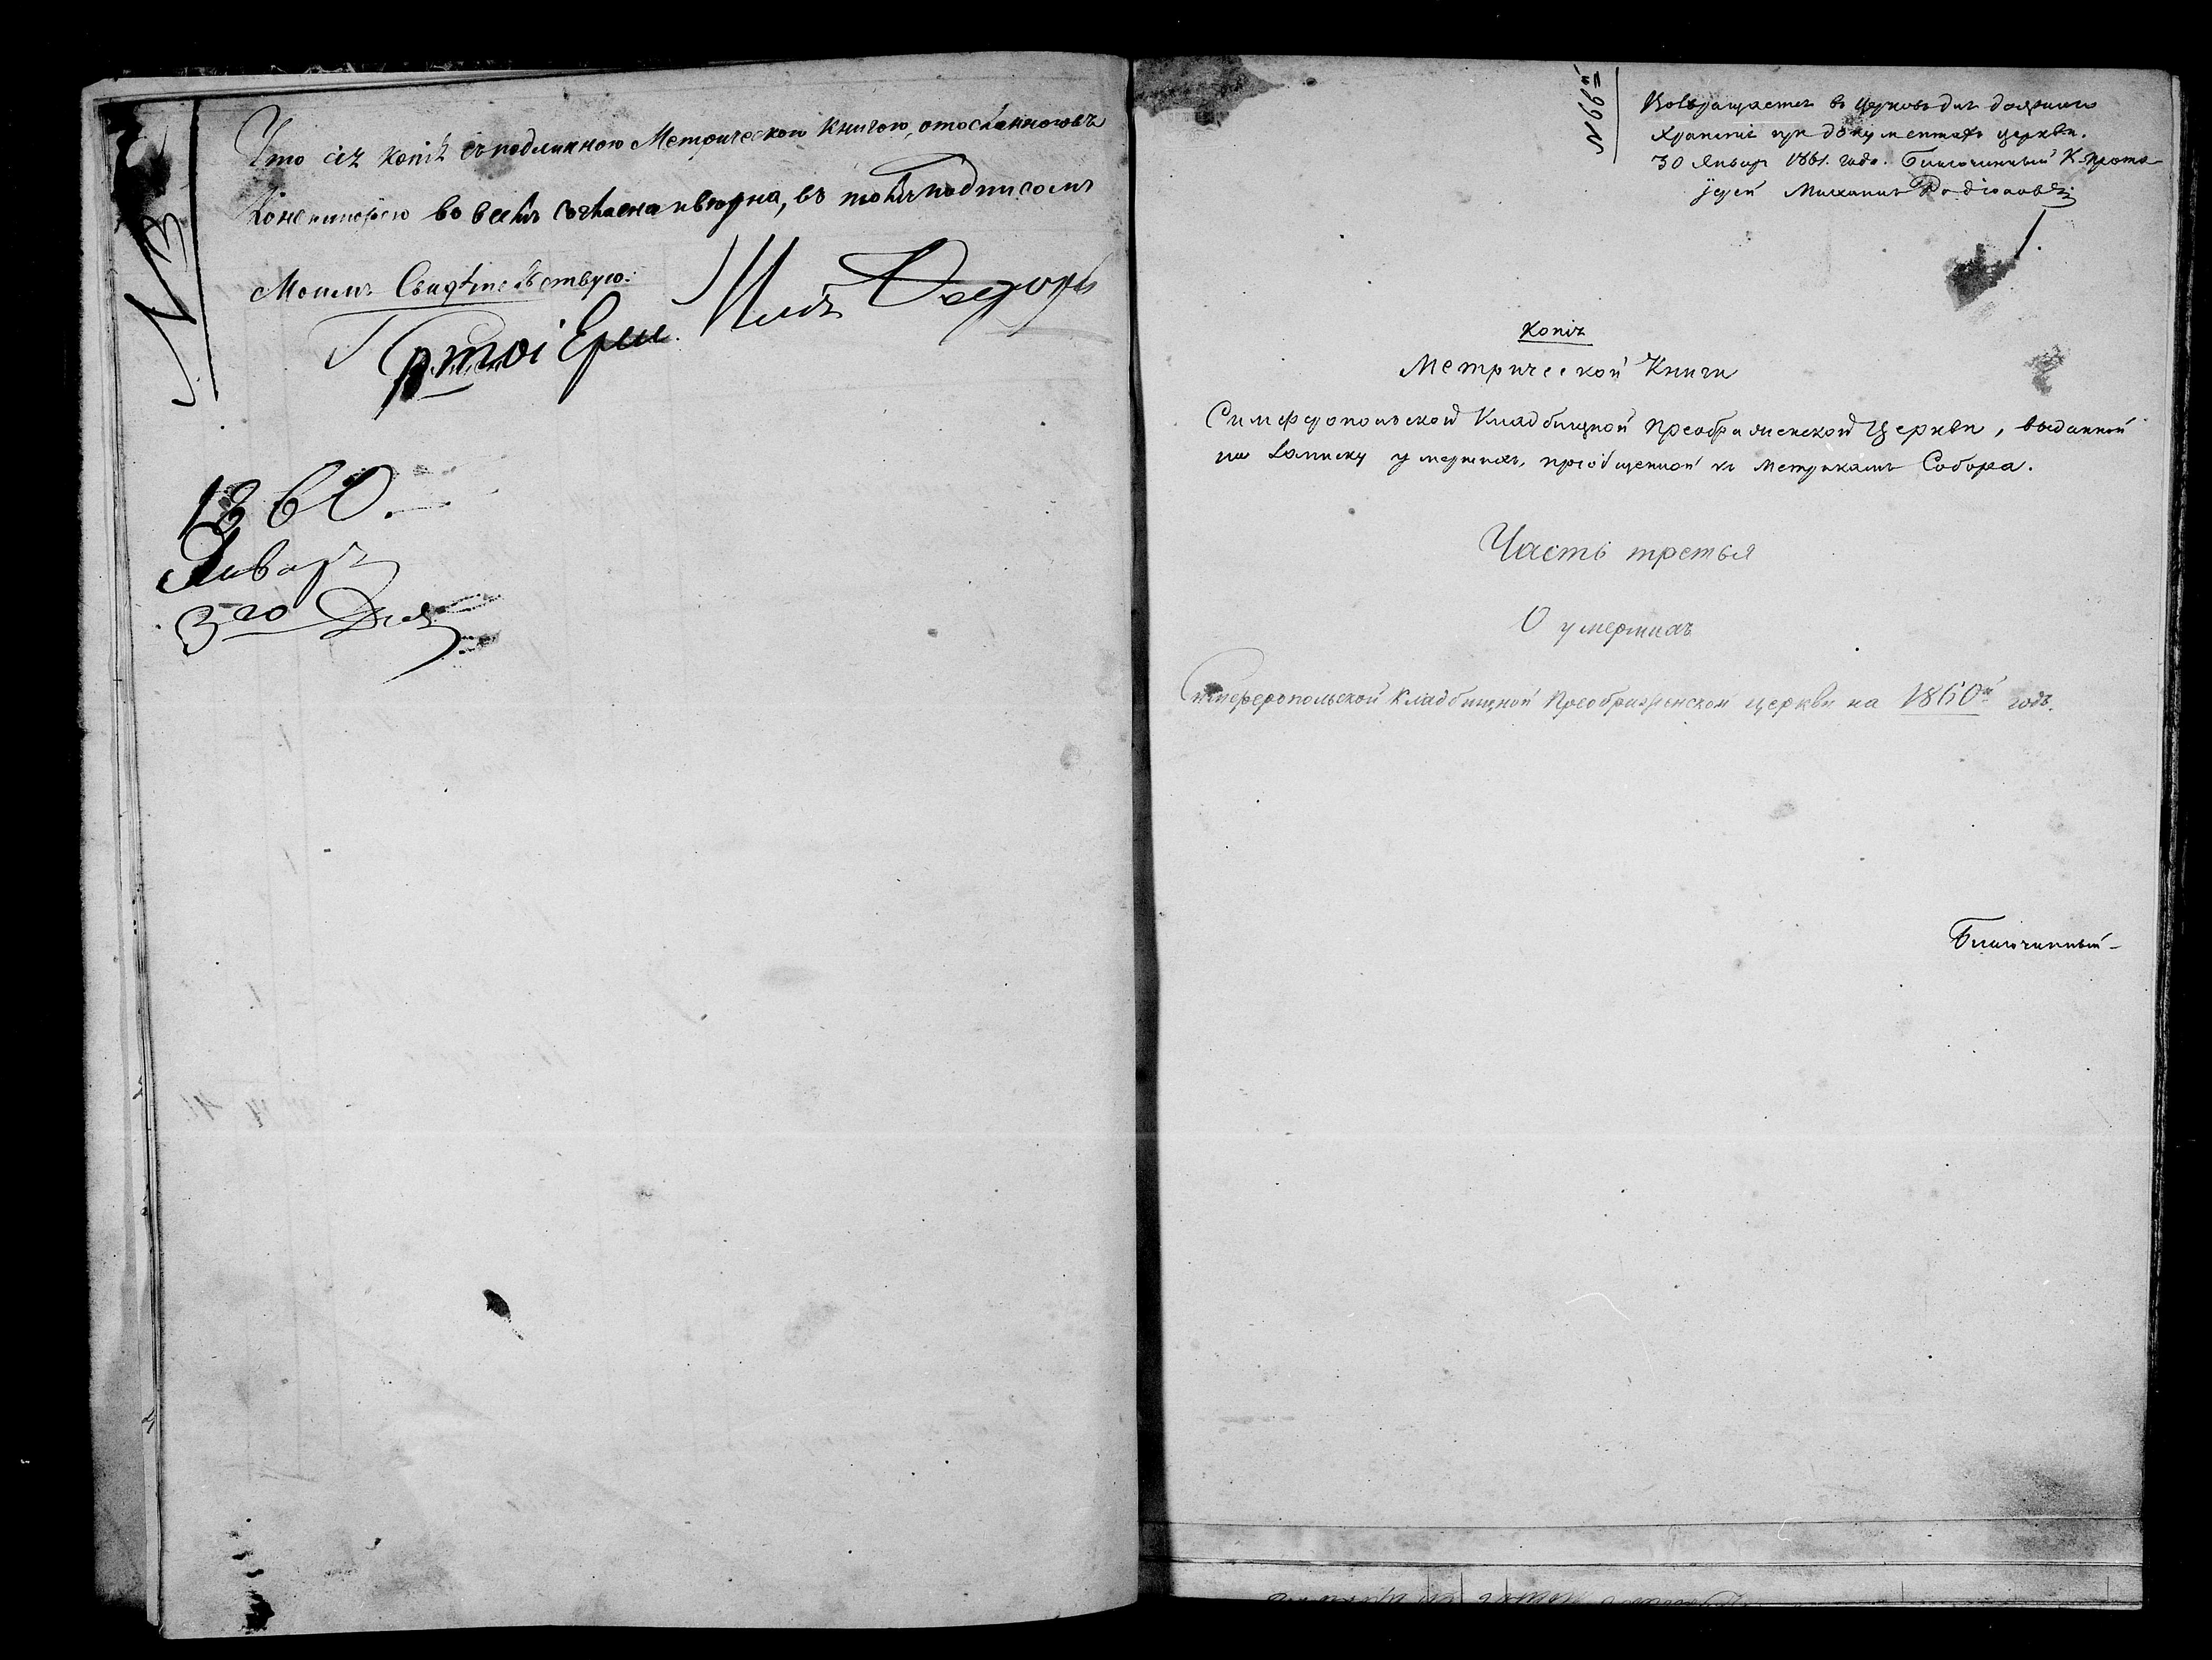 № 3
Что сія копія съ подлинною Метрическою Книгою, отосланною въ
Консисторію во всемъ согласна и верна, въ томъ подписомъ
Моимъ Свидѣтельствую:
Протоі Ерей
1860.
Январь
3го Дня
№ 69й
Возвращается въ церковь для должнаго
храненія при документахъ церкви.
30 Января 1861. года. Благочинный К. прото
іерей Михаилъ Родіоновъ
Копія
Метрической Книги
Симферопольской Кладбищной Преображенской Церкви, выданной
на записку умершихъ, пріобщенной къ метрикамъ Собора.
Часть третья
О умершихъ
Симферопольской Кладбищной Преображенской церкви на 1860й годъ.
Благочинный